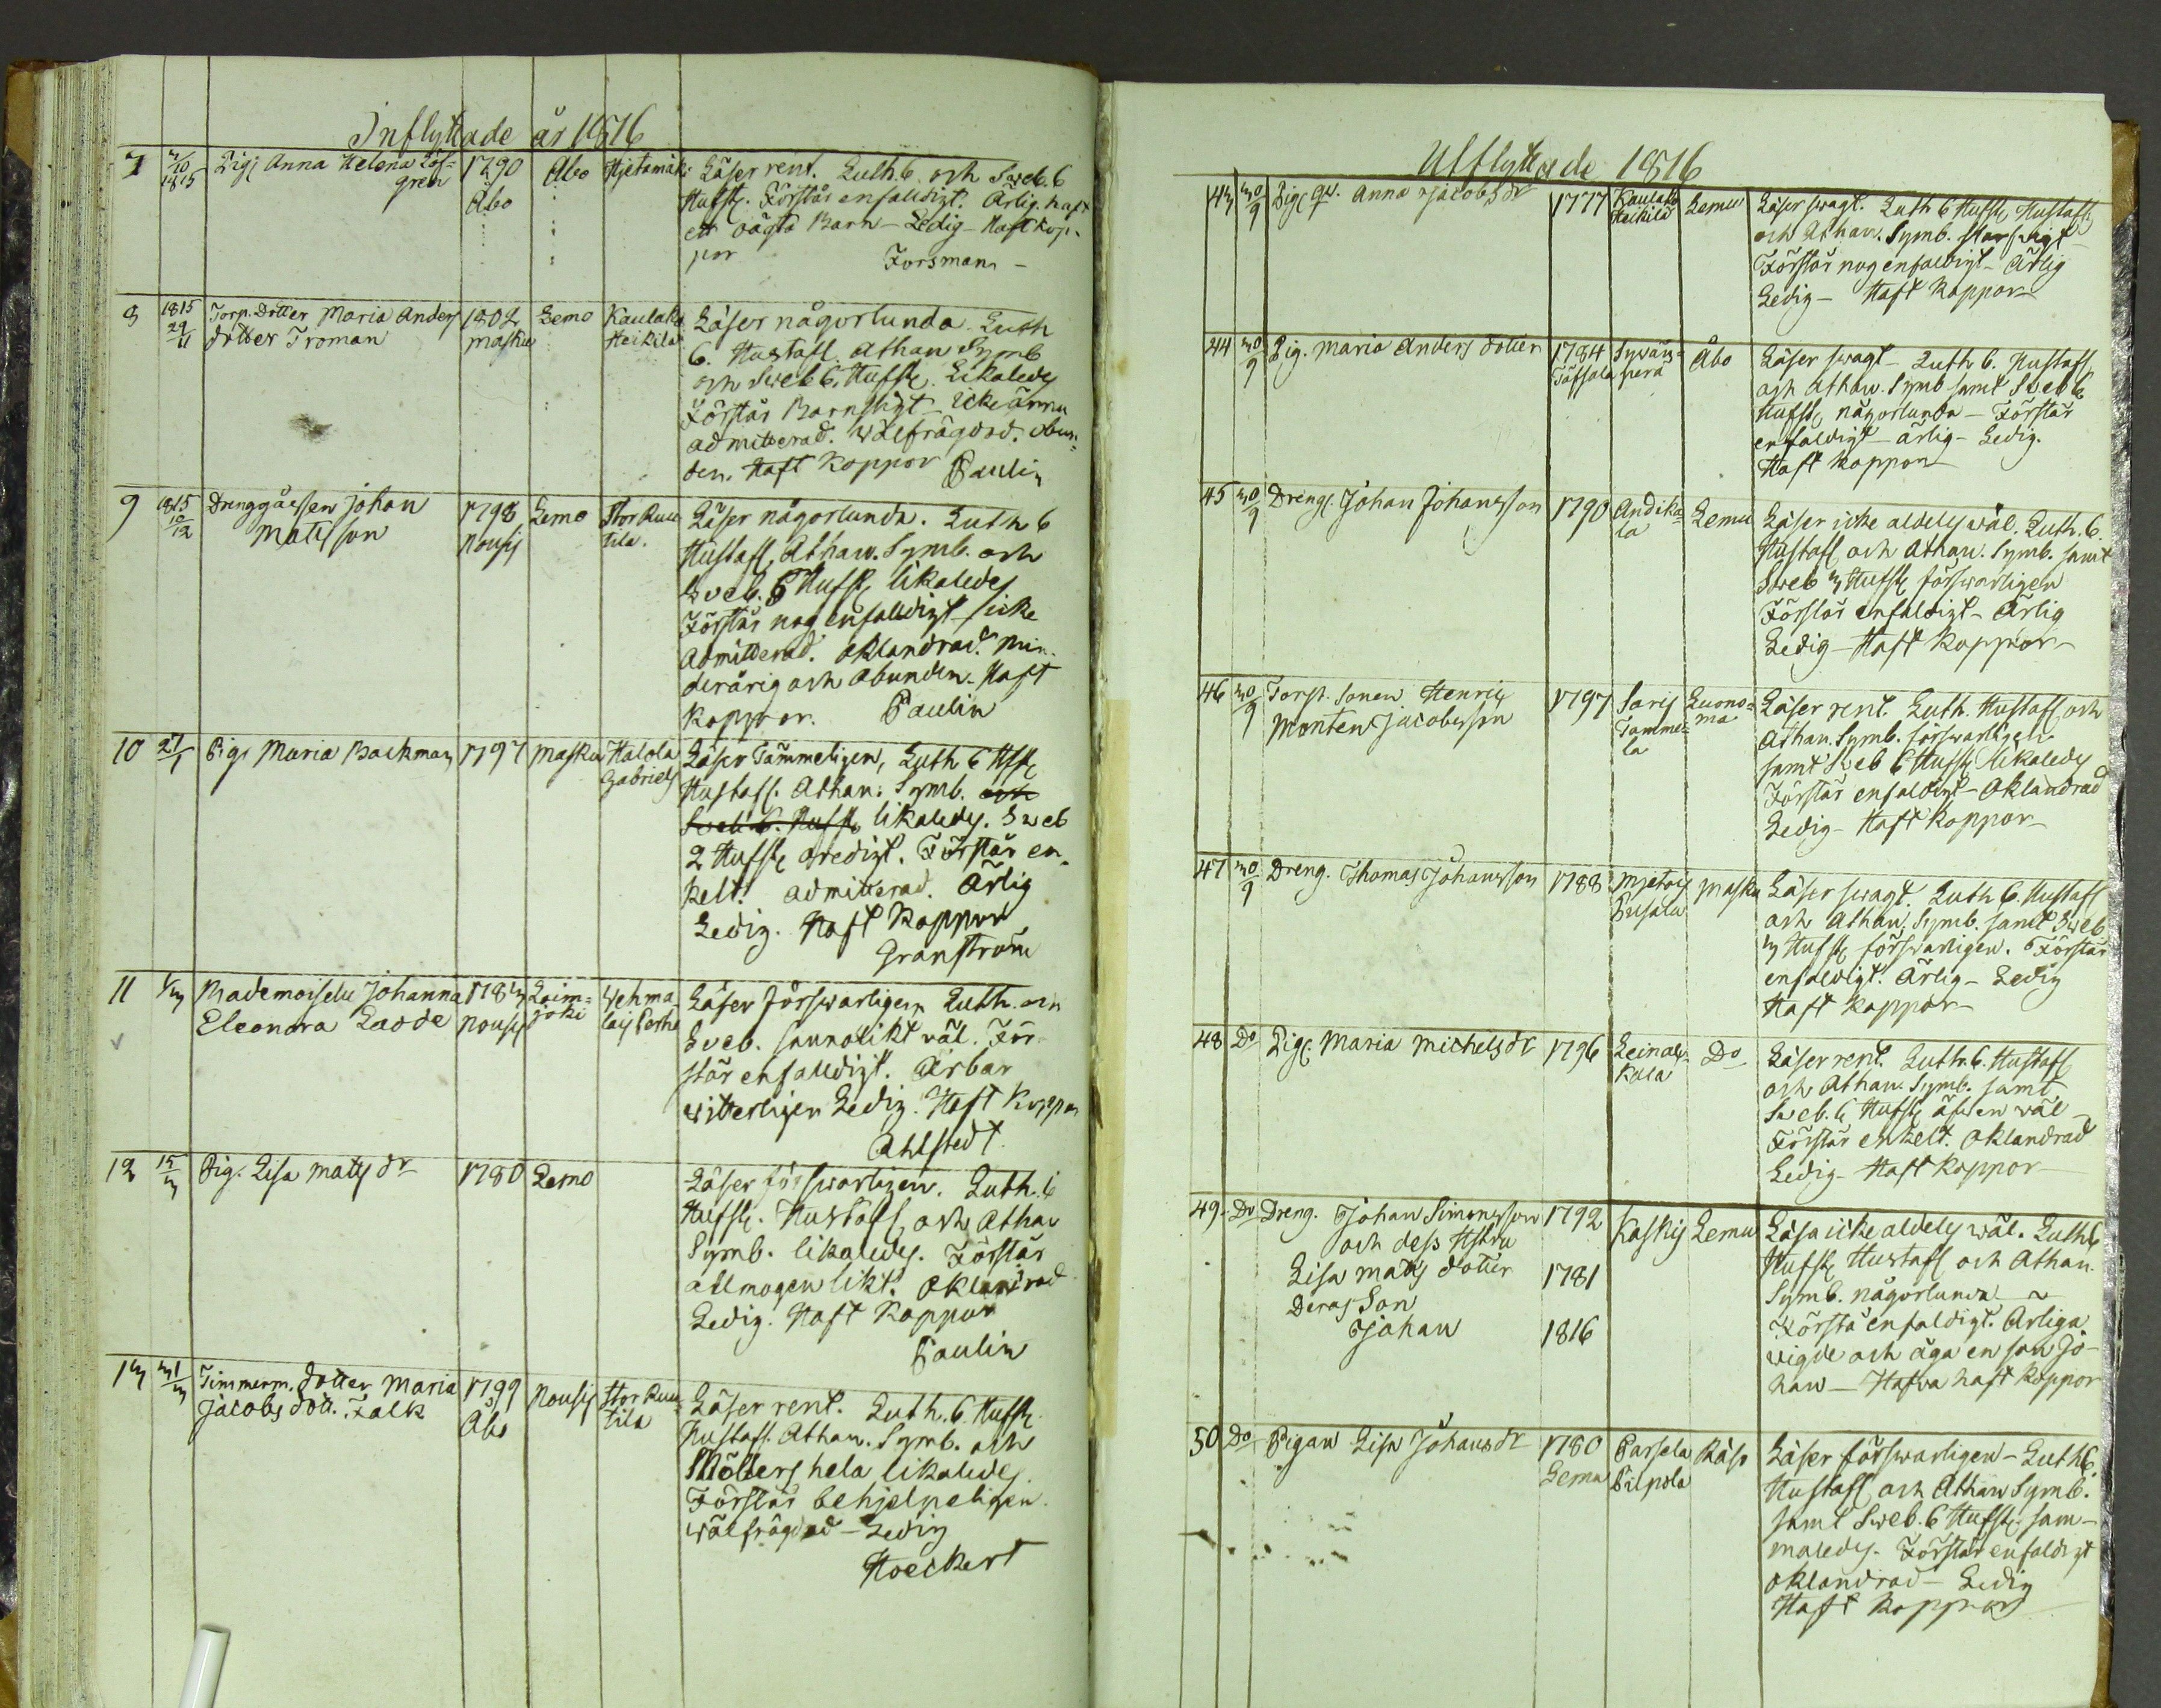 Inflyttade år 1816
7 3/10 1815 Pig. Anna Helena Löf-
gren
1790
Åbo
Åbo
Hjetamäki
Läser rent. Luth. 6 och Sweb. 6
Hufst. Förstår enfalldigt. Ärlig. haft
ett oägta Barn - Ledig - Haft Kop-
por Forsman -
8 1815 29/11 Torp. Dotter Maria Anders
dotter Troman
1802
Masku
Lemo
Kaulaks
Heikilä
Läser någorlunda. Luth
6. Hustafl. Athan Symb
och Sweb 6. Hufst. Likaledes
Förstår Barnsligt - icke ännu
admitterad. Wälfrägdad. obun-
den. Haft Koppor Paulin
9 1815 10/12 Drenggåssen Johan
Matsson
1798
Nousis
Lemo
Stor Ruu
tila.
Läser någorlunda. Luth 6
Hustafl, Athan. Symb. och
Sveb. 6 Hufst. likaledes
Förstår nog enfalldigt - icke
admitterad. Oklandrad. Min-
derårig och Obunden. Haft
Koppor. Paulin
10 27/1 Pig. Maria Backman 1797 Masku Halola
Gabriels
Läser Tämmeligen, Luth 6 Hfst.
Hustafl. Athan. Symb. och
Sveb. 6. Hufst. likaledes. Sveb
2 Hufst. oredigt. Förstår en-
kelt. admitterad. Ärlig
Ledig. Haft Koppor
Granström
11 1/3 Mademoiselle Johanna
Eleonora Ladde
1783
Nousis
Loim-
joki
Wehma-
lais Perhe
Läser förswarligen Luth. och
Sveb. sannolikt väl. För-
står enfalldigt. Ärbar
witterligen Ledig. Haft Koppor
Ahlstedt.
12 15/3 Pig. Lisa Mats dr 1780 Lemo
Läser förswarligen. Luth. 6
Hufst. Hustafl, och Athan
Symb. likaledes. Förstår
allmogen likt. Oklandrad
Ledig. Haft Koppor
Paulin
13 31/3 Timmerm. dotter Maria
Jacobs dott. Falk
1799
Åbo
Nousis
Stor Ruu-
tila
Läser rent. Luth. 6. Hufst.
Hustafl. Athan. Symb. och
Möllers hela likaledes.
Förstår behjelpeligen.
Wälfrägdad - Ledig
Hoeckert
Utflyttade 1816
43 30/9 Pig. Anna Jacobs dr 1777 Kaulaks
Heikilä
Lemu
Läser swagt. Luth 6 Hufst. Hustafl
och Athan. Symb.
Förstår nog enfaldigt - Ärlig
Ledig - Haft Koppor
44 30/9 Pig. Maria Anders dotter 1784
Töfsala
Sywäns-
perä
Åbo
Läser swagt - Luth 6. Hustafl
och Athan. Symb samt Sweb 6
Hufst. någorlunda - Förstår
enfaldigt - ärlig - Ledig.
Haft Koppor
45 30/9 Dreng. Johan Johansson 1790 Andika-
la
Lemu
Läser icke aldeles wäl. Luth. 6.
Hustafl och Athan. Symb. samt
Sweb 3 Hufst. förswarligen
Förstår enfaldigt - Ärlig
Ledig - Haft Koppor -
46 30/9 Torp. sonen Henric
Monten Jacobsson
1797 Saris
Tamme-
la
Luono-
ma
Läser rent. Luth. Hustafl och
Athan. Symb. förswarligen
samt Sveb 6 Hufst. likaledes
Förstår enfaldigt - Oklandrad
Ledig - Haft Koppor -
47 30/9 Dreng. Thomas Johansson 1788 Mjetois
Pusala
Masku
Läser swagt. Luth 6. Hustafl
och Athan. Symb. samt Sweb
3 Hufst. förswarligen. Förstår
enfaldigt. Ärlig - Ledig
Haft Koppor -
48 Do Pig. Maria Michels dr 1796 Leinak-
kala
Do
Läser rent. Luth. 6. Hustafl
och Athan. Symb. samt
Sveb. 6 Hufst. äfwen wäl -
Förstår enkelt. Oklandrad
Ledig - Haft Koppor -
49. Do Dreng. Johan Simonsson 1792
och dess Hstru
Lisa Mats dotter 1781
Deras Son
Johan 1816
Kaskis Lemu
Läsa icke aldeles wäl. Luth 6
Hufst. Hustafl och Athan.
Symb. någorlunda ~
Förstå enfaldigt. Ärliga
wigde och äga en son Jo-
han - Hafva haft Koppor
50 Do Pigan Lisa Johans dr 1780
Lemu
Parsela
Pilpola
Räso
Läser förswarligen - Luth 6.
Hustafl och Athan Symb.
samt Sweb. 6 Hufst. sam-
maledes. Förstår enfaldigt
oklandrad - Ledig
Haft Koppor